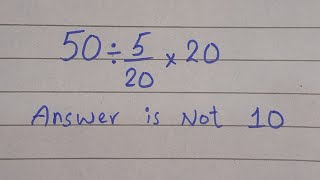 50 ÷ 5/20 × 20
Answer is Not 10